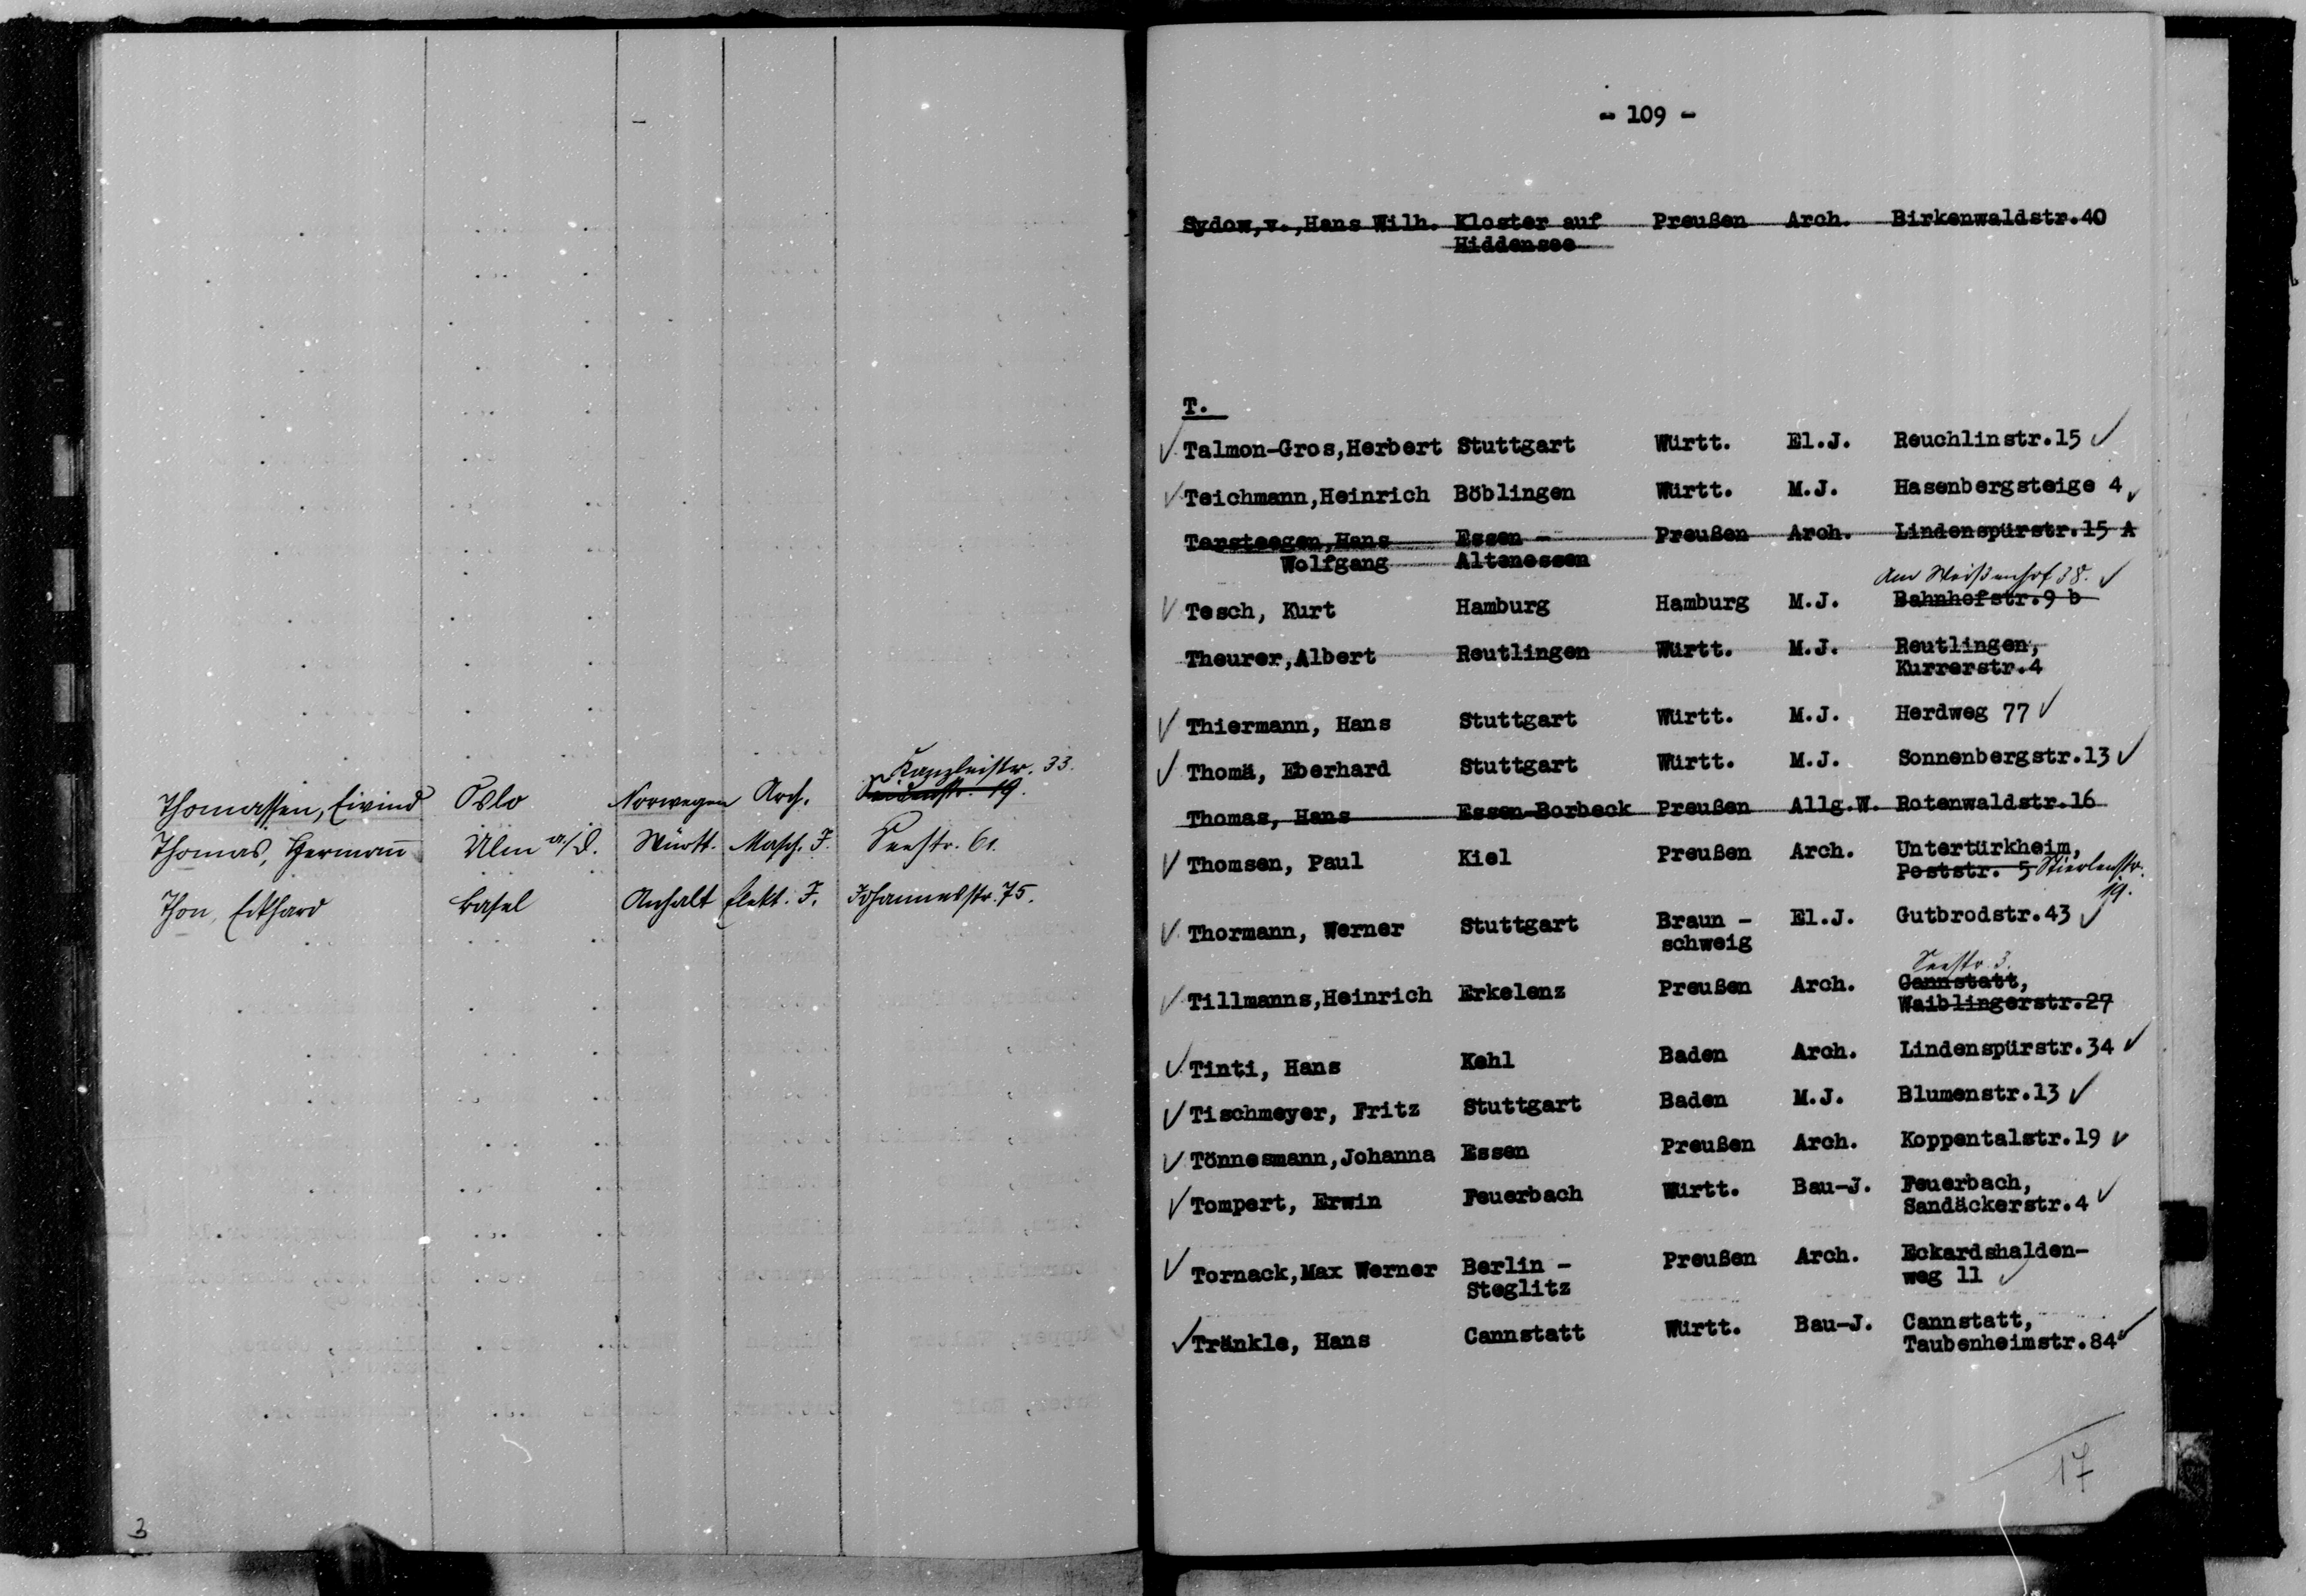 Kanzleistr. 33.
Thomassen, Eivind Oslo Norwegen Arch. Seidenstr. 19.
Thomas, Hermann Ulm a/D. Württ. Masch. I. Seestr. 61.
Thon, Eckhard Basel Anhalt Elekt. I. Johannesstr. 75.
3
- 109 -
Sydow,v.,Hans Wilh. Kloster auf Preußen Arch. Birkenwaldstr.40
Hiddensee
T.
✓ Talmon-Gros,Herbert Stuttgart Württ. El.J. Reuchlinstr.15 ✓
✓ Teichmann,Heinrich Böblingen Württ. M.J. Hasenbergsteige 4 ✓
Tersteegen,Hans Essen - Preußen Arch. Lindenspürstr.15 A
Wolfgang Altenessen
Am Weißenhof 38. ✓
✓ Tesch, Kurt Hamburg Hamburg M.J. Bahnhofstr.9 b
Theurer,Albert Reutlingen Württ. M.J. Reutlingen,
Kurrerstr.4
✓ Thiermann, Hans Stuttgart Württ. M.J. Herdweg 77 ✓
✓ Thomä, Eberhard Stuttgart Württ. M.J. Sonnenbergstr.13 ✓
Thomas, Hans Essen-Borbeck Preußen Allg.W. Rotenwaldstr.16
✓ Thomsen, Paul Kiel Preußen Arch. Untertürkheim,
Poststr. 5 Stierlenstr.
19.
✓ Thormann, Werner Stuttgart Braun - El.J. Gutbrodstr.43 ✓
schweig
Seestr. 3.
✓ Tillmanns,Heinrich Erkelenz Preußen Arch. Cannstatt,
Waiblingerstr.27
✓ Tinti, Hans Kehl Baden Arch. Lindenspürstr.34 ✓
✓ Tischmeyer, Fritz Stuttgart Baden M.J. Blumenstr.13 ✓
✓ Tönnesmann,Johanna Essen Preußen Arch. Koppentalstr.19 ✓
✓ Tompert, Erwin Feuerbach Württ. Bau-J. Feuerbach,
Sandäckerstr.4 ✓
✓ Tornack,Max Werner Berlin - Preußen Arch. Eckardshalden-
Steglitz weg 11 ✓
✓ Tränkle, Hans Cannstatt Württ. Bau-J. Cannstatt,
Taubenheimstr.84 ✓
17